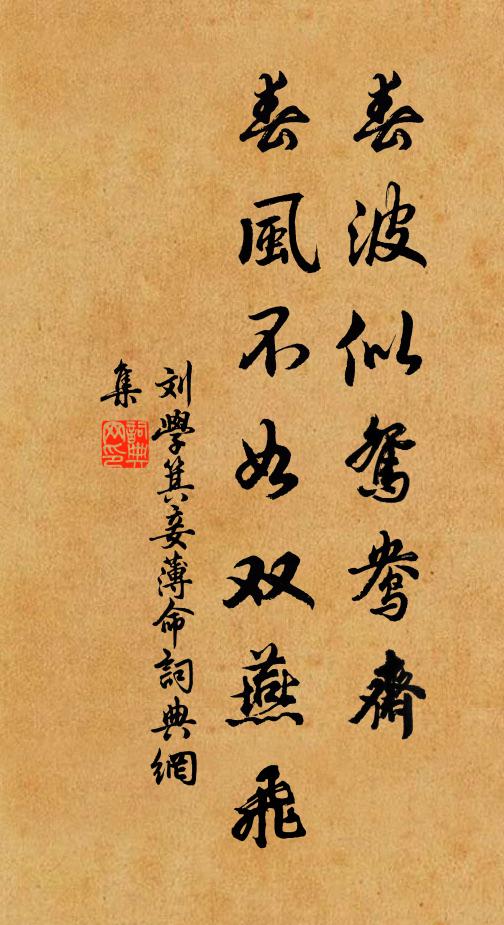 春波似鴛鴦齊
春風不如双燕飛
刘學箕妾薄命詞典網
集
詞典网印